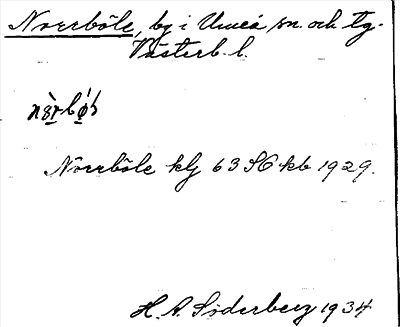 Norrböle, by i Umeå sn. och tg.
Västerb. l.
Norrböle klj 63 SO kb 1929.
H. A. Söderberg 1934